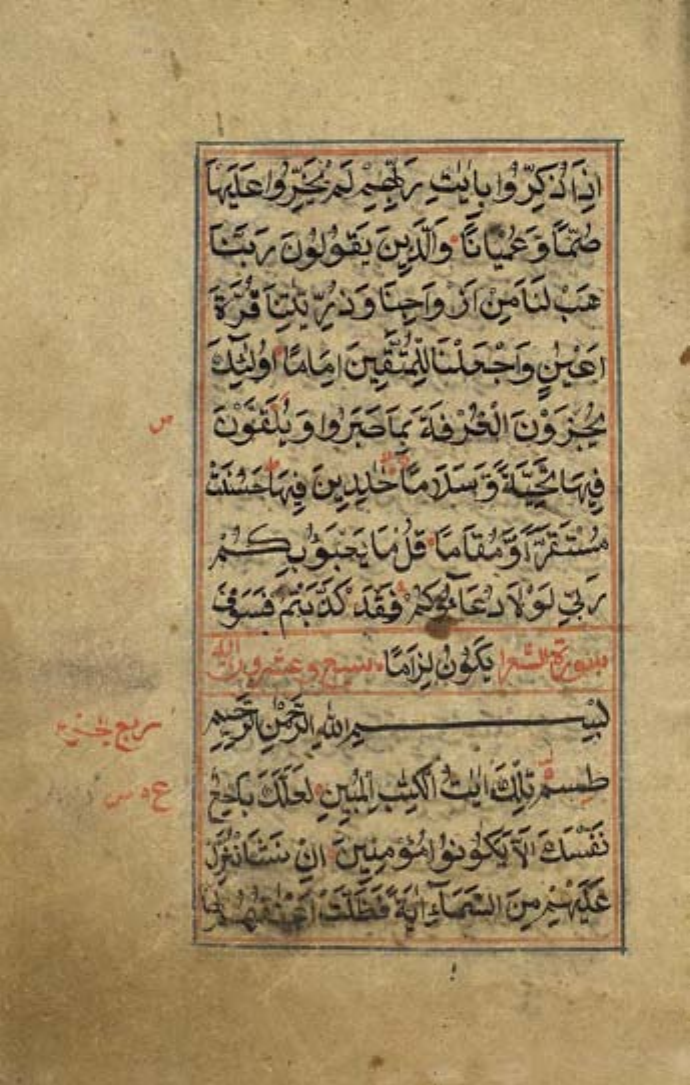 اِذَا ذُكِّرُوا بِاٰيٰتِ رَبِّهِمْ لَمْ يَخِرُّوا عَلَيْهَا
صُمًّا وَّعُمْيَانًا وَالَّذِينَ يَقُولُونَ رَبَّنَا
هَبْ لَنَا مِنْ اَزْوَاجِنَا وَذُرِّيّٰتِنَا قُرَّةَ
اَعْيُنٍ وَاجْعَلْنَا لِلْمُتَّقِينَ اِمَامًا اُولٰئِكَ
يُجْزَوْنَ الْغُرْفَةَ بِمَا صَبَرُوا وَيُلَقَّوْنَ
ص
فِيهَا تَحِيَّةً وَّسَلٰمًا خٰلِدِينَ فِيهَا حَسُنَتْ
مُسْتَقَرًّا وَّمُقَامًا قُلْ مَا يَعْبَؤُا بِكُمْ
رَبِّي لَوْلَا دُعَاؤُكُمْ فَقَدْ كَذَّبْتُمْ فَسَوْفَ
سورة الشعرا يَكُونُ لِزَامًا سبع وعشرون
بِسْمِ اللّٰهِ الرَّحْمٰنِ الرَّحِيمِ
ربع
طٰسٓمّٓ تِلْكَ اٰيٰتُ الْكِتٰبِ الْمُبِينِ لَعَلَّكَ بَاخِعٌ
نَفْسَكَ اَلَّا يَكُونُوا مُؤْمِنِينَ اِنْ نَشَاْ نُنَزِّلْ
عَلَيْهِمْ مِنَ السَّمَاءِ اٰيَةً فَظَلَّتْ اَعْنَاقُهُمْ